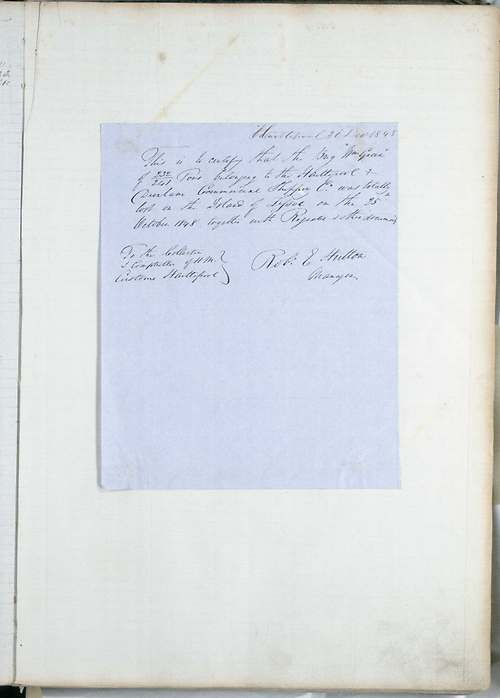 Hartlepool 20 Nov 1848
This is to certify that the Brig "Wm Gray"
of 232/241 Tons belonging to the Hartlepool &
Durham Commercial Shipping Co. was totally
lost on the Island of on the 25th
October 1848 together with Register & other documents
To the Collector
& Comptroller of H.M.
Customs Hartlepool
Robt. E. Hutton
Manager